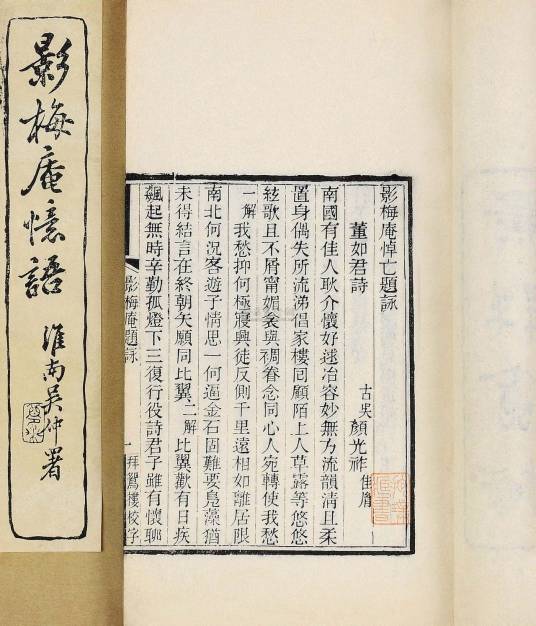 影梅庵憶語
淮南吳仲署
影梅庵悼亡題詠
古吳 顏光祚
董如君詩
南國有佳人耿介懷好逑冶容妙無方流韻清且柔
置身偶失所流涕倡家樓回顧陌上人草露等悠悠
絃歌且不屑甯媚衾與裯眷念同心人宛轉使我愁
一解 我愁抑何極寢興徒反側千里遠相如離居限
南北何況客遊子情思一何逼金石固難要鳧藻猶
未得結言在終朝矢願同比翼 二解 比翼歡有日疾
飆起無時辛勤孤燈下三復行役詩君子雖有懷聊
影梅庵題詠 一 拜鴛樓校字